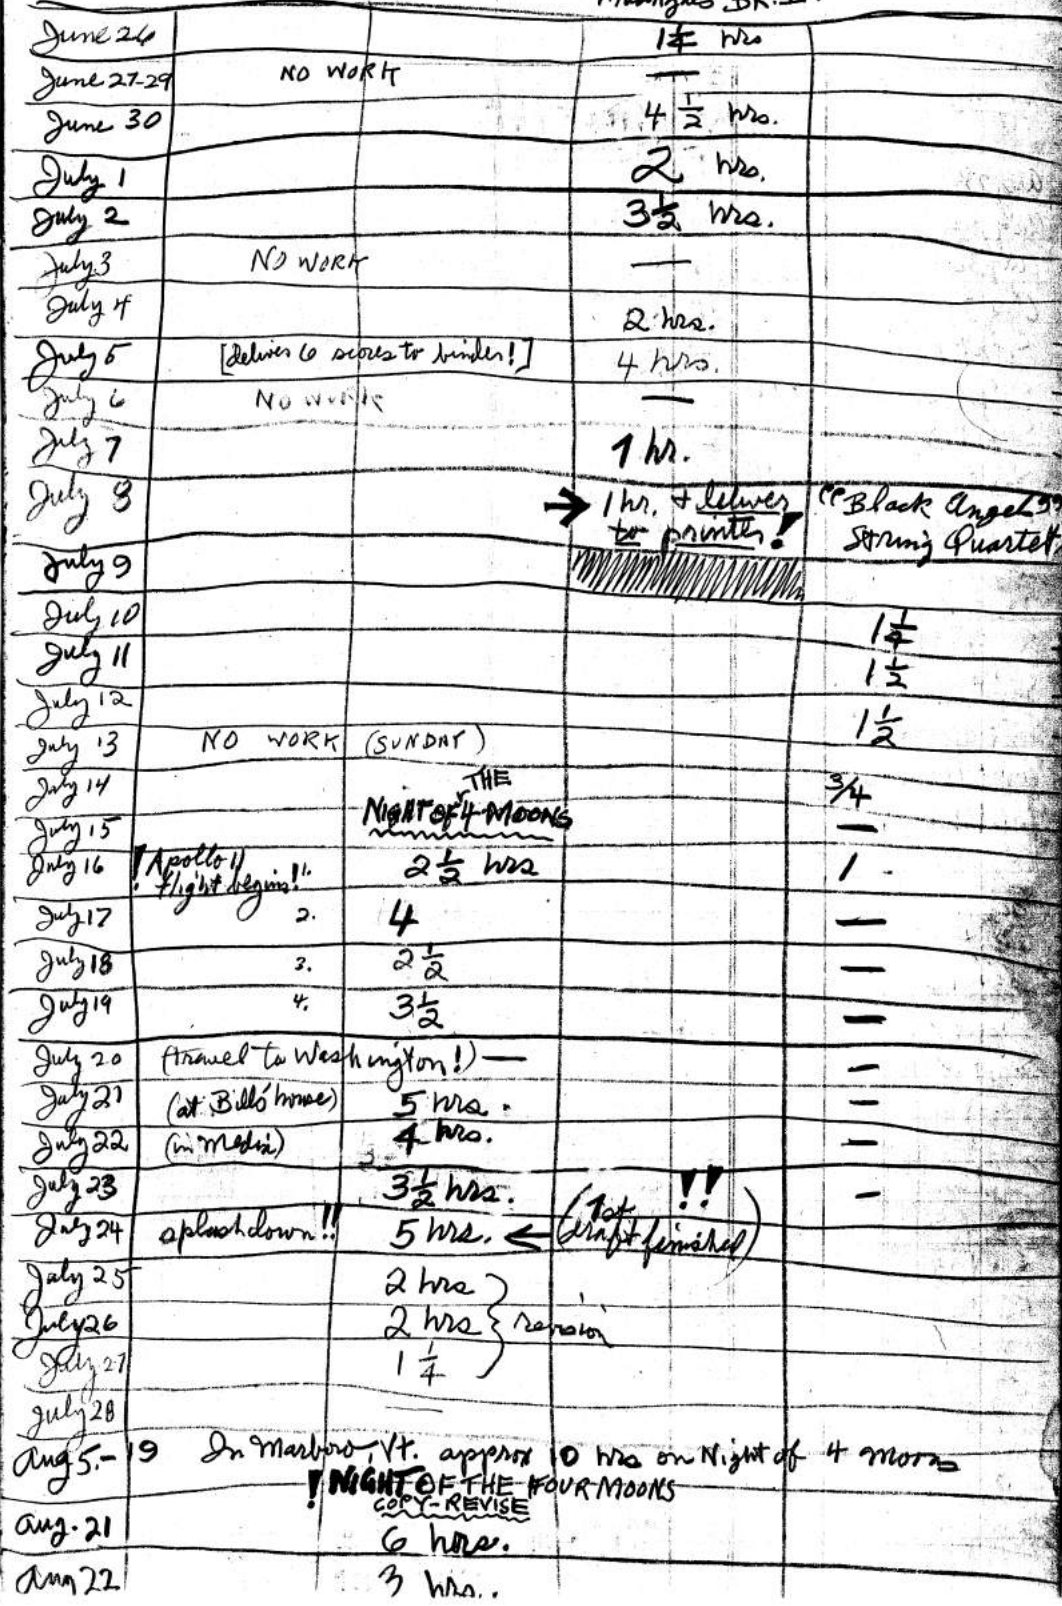 Madrigals BK. I
June 26 1¼ hrs
June 27-29 NO WORK —
June 30 4 ½ hrs.
July 1 2 hrs.
July 2 3½ hrs.
July 3 NO WORK —
July 4 2 hrs.
July 5 [deliver 6 scores to binder!] 4 hrs.
July 6 NO WORK —
July 7 1 hr.
July 8 → 1 hr. + deliver "Black Angels"
to printer! String Quartet
July 9
July 10 1½
July 11 1½
July 12 1½
July 13 NO WORK (SUNDAY)
July 14 THE 3/4
NIGHT OF 4 MOONS
July 15 —
July 16 ! Apollo 11 2½ hrs 1
flight begins!! 1.
July 17 2. 4 —
July 18 3. 2½ —
July 19 4. 3½ —
July 20 (travel to Washington!) — —
July 21 (at Bill's house) 5 hrs. —
July 22 (in Media) 4 hrs. —
July 23 3½ hrs. !! —
July 24 splashdown!! 5 hrs. ← (1st
draft finished)
July 25 2 hrs
July 26 2 hrs } revision
July 27 1¼
July 28 —
Aug 5.-19 In Marboro, Vt. approx 10 hrs on Night of 4 Moons
! NIGHT OF THE FOUR MOONS
COPY-REVISE
Aug. 21 6 hrs.
Aug 22 3 hrs..